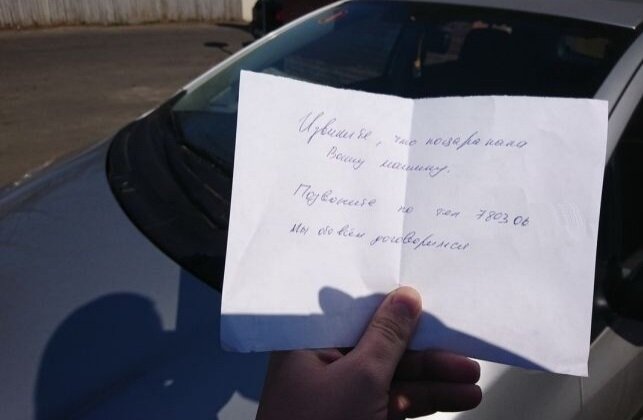 Извините, что поцарапала
Вашу машину.
Позвоните по тел 780306
Мы обо всём договоримся